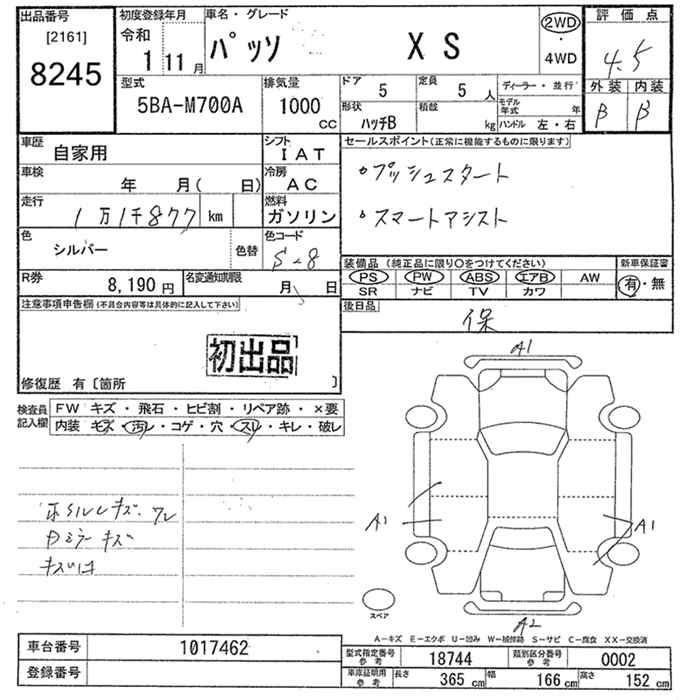 出品番号
[2161]
8245
初度登録年月
令和
1 11 月
車名・グレード
パッソ X S
2WD
・
4WD
評価点
4.5
外装 内装
B B
型式
5BA-M700A
排気量
1000
CC
ドア
5
定員
5 人
形状
ハッチB
積載
kg
ディーラー・並行
モデル年式 年
ハンドル 左・右
車歴
自家用
シフト
IAT
車検
年 月( 日)
冷房
AC
走行
1万1千877 km
燃料
ガソリン
色
シルバー
色替
色コード
S-8
R券
8,190 円
名変通知期限
月 日
セールスポイント(正常に機能するものに限ります)
プッシュスタート
スマートアシスト
装備品(純正品に限り○をつけてください)
PS PW ABS エアB AW
SR ナビ TV カワ
新車保証書
有・無
後日品
保
注意事項申告欄(不具合内容等は具体的に記入して下さい)
初出品
修復歴 有〔箇所 〕
検査員
記入欄
FW キズ・飛石・ヒビ割・リペア跡・×要
内装 キズ・汚レ・コゲ・穴・スレ・キレ・破レ
キズ
ミラー キズ
A1
A1
A1
A2
スペア
A-キズ E-エクボ U-凹み W-補修跡 S-サビ C-腐食 XX-交換済
車台番号
1017462
登録番号
型式指定番号
参考
18744
類別区分番号
参考
0002
車庫証明用
参考
長さ
365 cm
幅
166 cm
高さ
152 cm